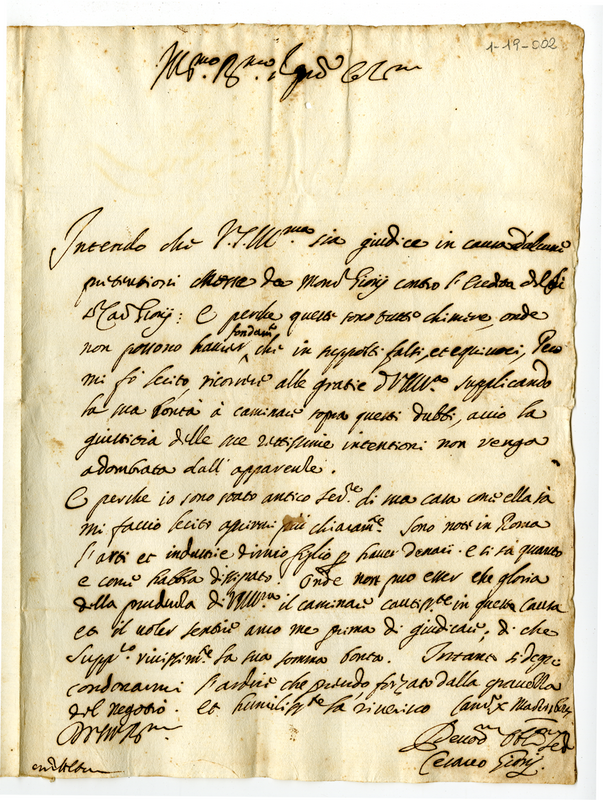 1-19-002
Ill.mo R.mo Sig.r
Intendo che V.S. Ill.ma sia giudice in causa d'alcune
pretensioni mosse da Mons.r Giorij contro l'Eredità del
S. Card. Giorij: e perche queste sono tutte chimere, onde
non possono haver fondam.to che in supposti falsi, et equivoci, Però
mi fò lecito, ricorrere alle gratie di V.S. Ill.ma supplicando
la sua bontà à caminare sopra questi dubbi, acciò la
giustitia delle sue rettissime intentioni non venga
adombrata dall' apparenze.
E perche io sono stato antico Ser.re di sua casa come ella sà
mi faccio lecito aprirmi più chiaram.te Sono note in Roma
l'arti et industrie di mio figlio per haver denari. e si sà quanto
e come habbia dissipato. Onde non può esser che gloria
della prudenza di V.S. Ill.ma il caminare cautiss.te in questa causa
et il voler sentire anco me prima di giudicare; di che
supp.co vivissim.te la sua somma bontà. Intanto si degni
condonarmi l'ardire che prendo, forzato dalla gravezza
del negotio. et humiliss.te la riverisco Cam.no X
Di V.S. Ill.ma R.ma
Devot.mo Obl.mo Ser.
Cesareo Giorij